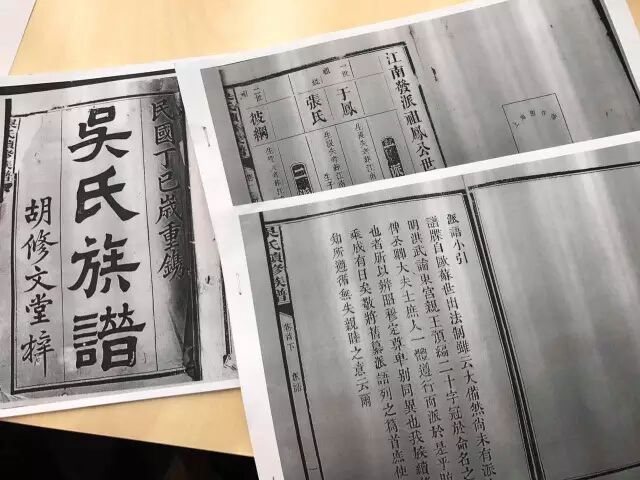 民國丁巳歲重鐫
吳氏族譜
胡修文堂梓
江南發派祖鳳公世
一世
于鳳
張氏
二世
彼綱
派語小引
譜牒自歐蘇世出法制雖云大備然尚未有派
明洪武諭東宮親王頂編二十字冠於命名之
俾公卿大夫士庶人一體遵行而派於是乎昉
也者所以辨昭穆定尊卑別同異也我族續修
乘成有日矣敬將舊纂派語列之篇首庶使
知所遵循無失親睦之意云爾
吳氏續修族譜
卷首下